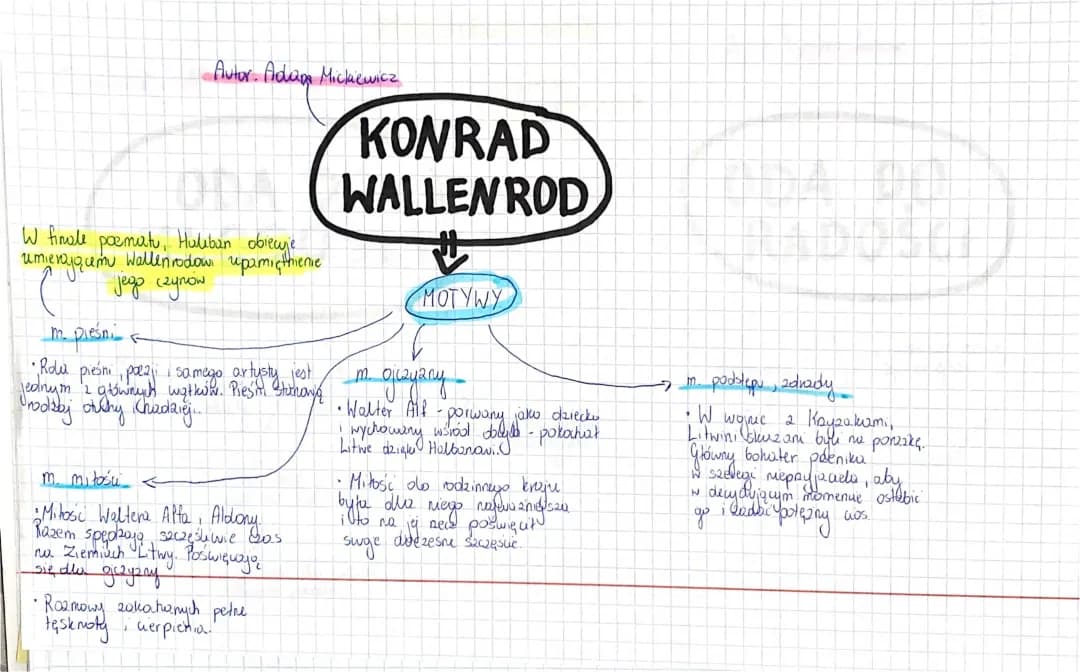 Autor. Adam Mickiewicz
KONRAD
WALLENROD
MOTYWY
W finale poematu, Halban obiecuje
umierającemu Wallenrodowi upamiętnienie
jego czynów
m. pieśni
• Rola pieśni, poezji i samego artysty jest
jednym z głównych wątków. Pieśni stanowią
rodzaj otuchy i nadziei.
m. miłości
• Miłość Waltera Alfa i Aldony.
Razem spędzają szczęśliwie czas
na Ziemiach Litwy. Poświęcają
się dla ojczyzny
• Rozmowy zakochanych pełne
tęsknoty i cierpienia.
m. ojczyzny
• Walter Alf - porwany jako dziecko
i wychowany wśród obcych - pokochał
Litwe dzięki Halbanowi.
• Miłość do rodzinnego kraju
była dla niego najważniejsza
i to na jej rzecz poświęcił
swoje doczesne szczęście.
m. podstępu, zdrady
• W wojnie z Krzyżakami,
Litwini skazani byli na porażkę.
Główny bohater przenika
w szeregi nieprzyjaciela, aby
w decydującym momencie osłabić
go i zadać potężny cios.